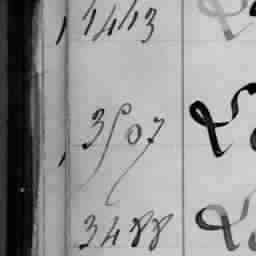 1443
3507
3488